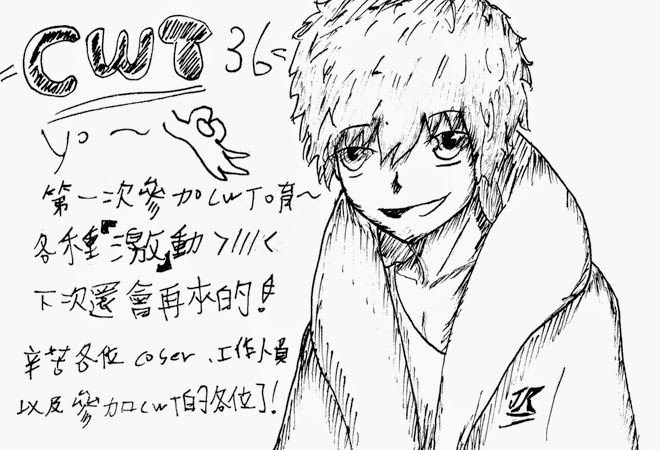 =CWT36=
yo~
第一次參加CWT唷~
各種『激動』>///<
下次還會再來的!
辛苦各位coser、工作人員
以及參加CWT的各位了!
JR